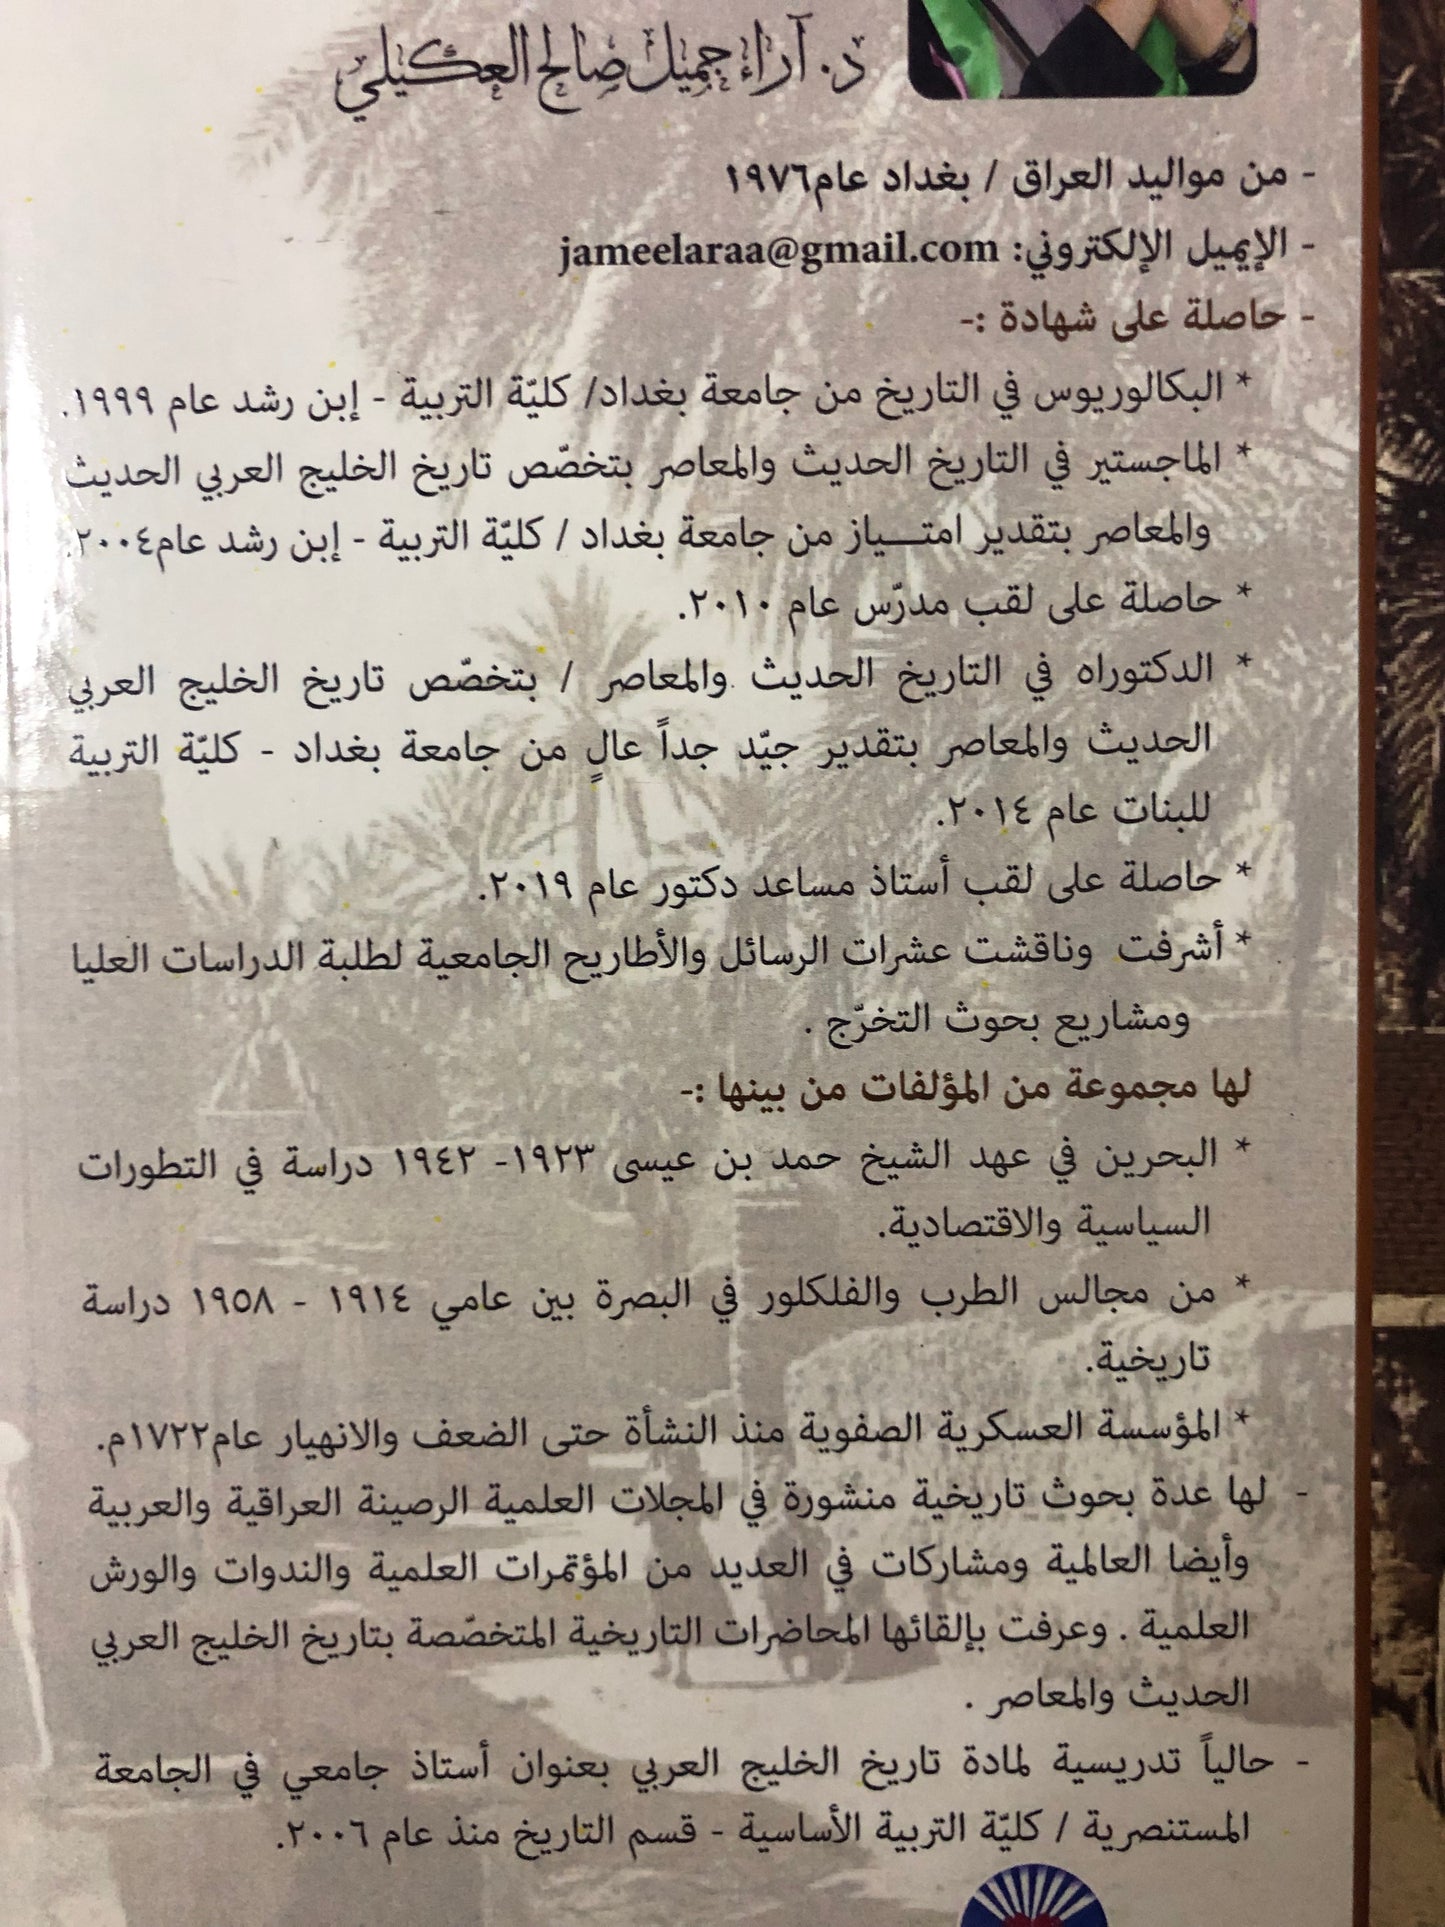 د. آراء جميل صالح العكيلي
- من مواليد العراق / بغداد عام١٩٧٦
- الإيميل الإلكتروني: jameelaraa@gmail.com
- حاصلة على شهادة :-
* البكالوريوس في التاريخ من جامعة بغداد/ كليّة التربية - إبن رشد عام ١٩٩٩.
* الماجستير في التاريخ الحديث والمعاصر بتخصّص تاريخ الخليج العربي الحديث
والمعاصر بتقدير امتـــياز من جامعة بغداد / كليّة التربية - إبن رشد عام٢٠٠٤.
* حاصلة على لقب مدرّس عام ٢٠١٠.
* الدكتوراه في التاريخ الحديث والمعاصر / بتخصّص تاريخ الخليج العربي
الحديث والمعاصر بتقدير جيّد جداً عالٍ من جامعة بغداد - كليّة التربية
للبنات عام ٢٠١٤.
* حاصلة على لقب أستاذ مساعد دكتور عام ٢٠١٩.
* أشرفت وناقشت عشرات الرسائل والأطاريح الجامعية لطلبة الدراسات العليا
ومشاريع بحوث التخرّج .
لها مجموعة من المؤلفات من بينها :-
* البحرين في عهد الشيخ حمد بن عيسى ١٩٢٣- ١٩٤٢ دراسة في التطورات
السياسية والاقتصادية.
* من مجالس الطرب والفلكلور في البصرة بين عامي ١٩١٤ - ١٩٥٨ دراسة
تاريخية.
* المؤسسة العسكرية الصفوية منذ النشأة حتى الضعف والانهيار عام١٧٢٢م.
- لها عدة بحوث تاريخية منشورة في المجلات العلمية الرصينة العراقية والعربية
وأيضا العالمية ومشاركات في العديد من المؤتمرات العلمية والندوات والورش
العلمية . وعرفت بإلقائها المحاضرات التاريخية المتخصّصة بتاريخ الخليج العربي
الحديث والمعاصر .
- حالياً تدريسية لمادة تاريخ الخليج العربي بعنوان أستاذ جامعي في الجامعة
المستنصرية / كليّة التربية الأساسية - قسم التاريخ منذ عام ٢٠٠٦.